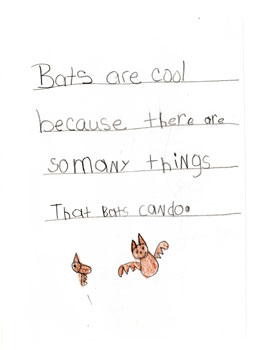 Bats are cool
because there are
somany things
That Bats cando.